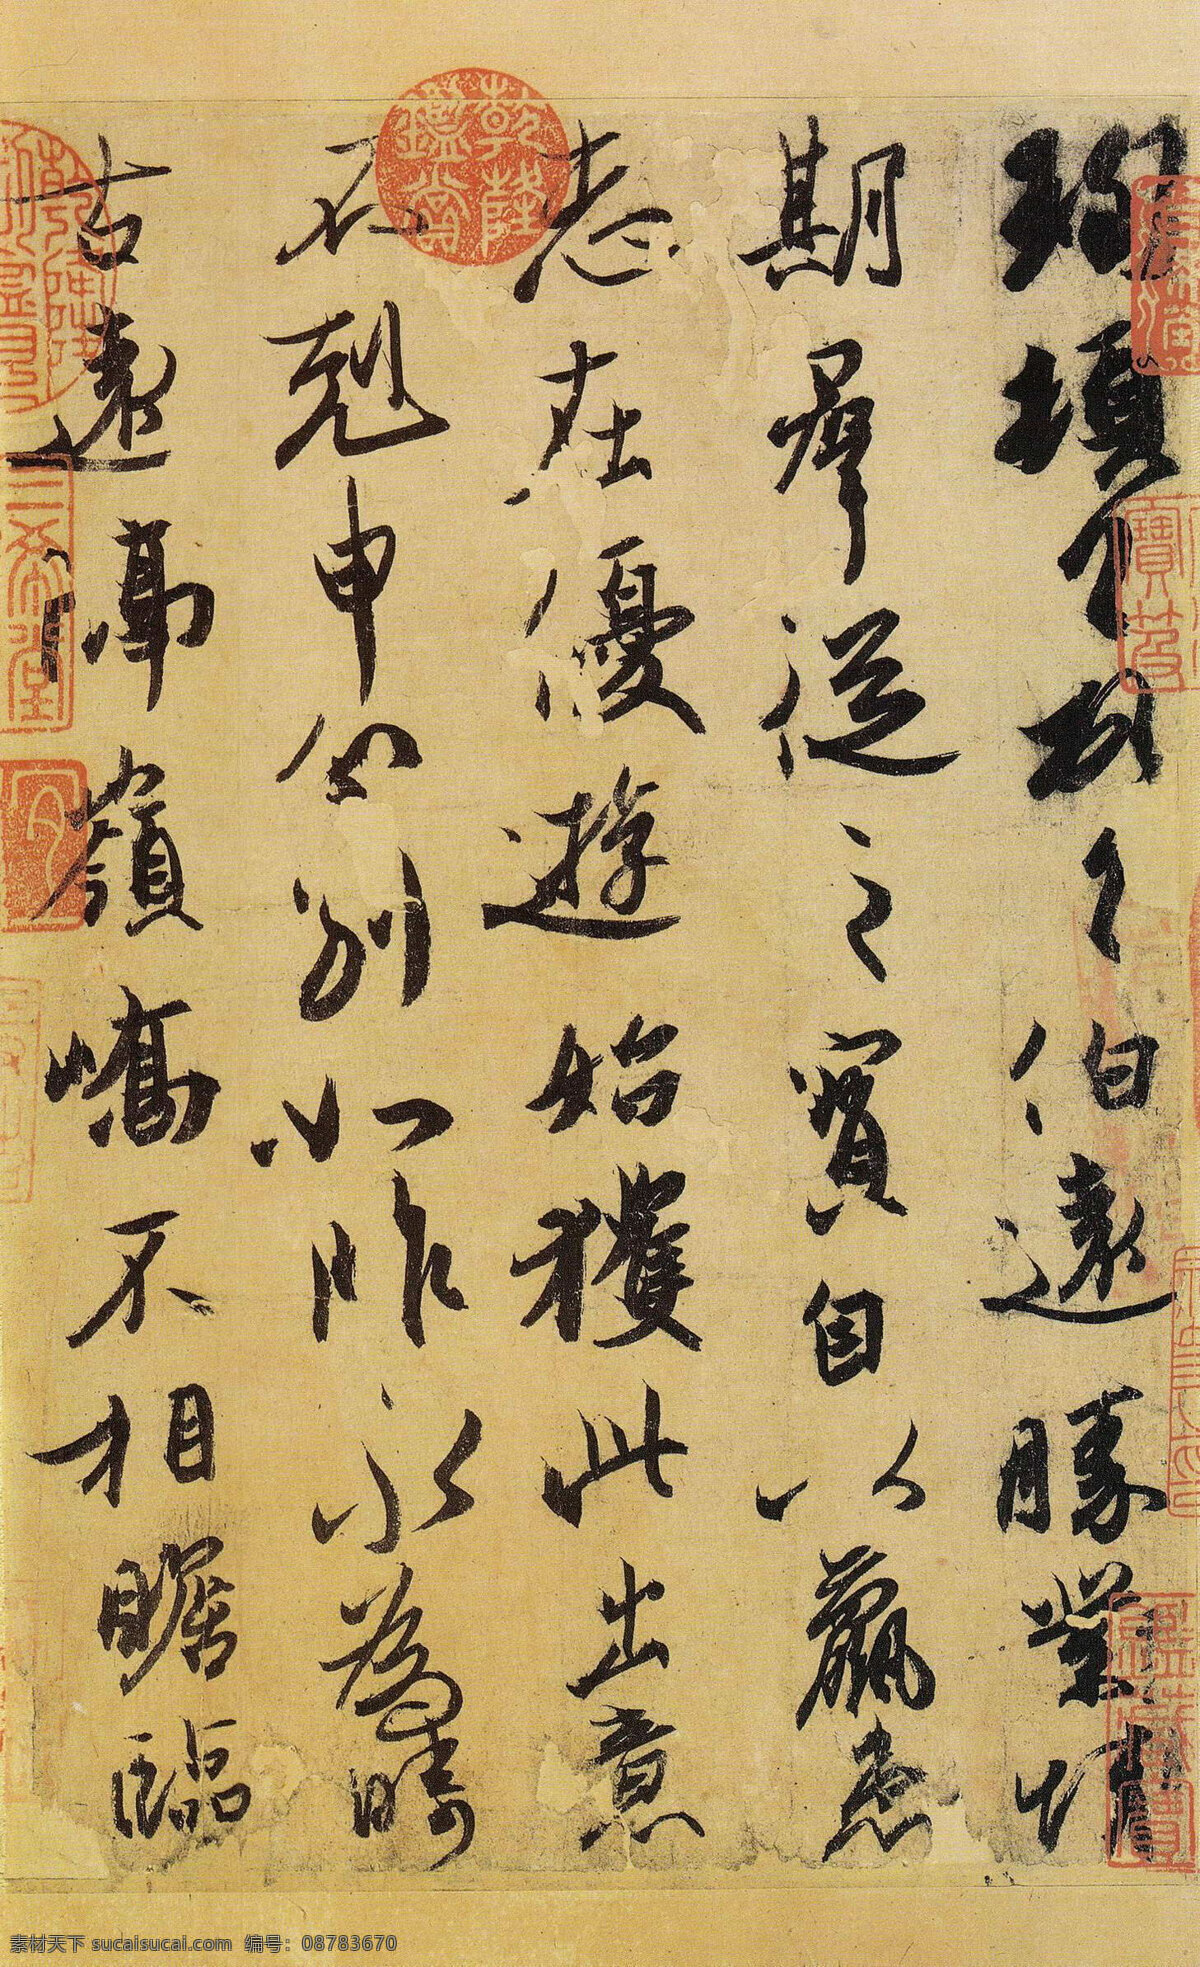 珣頓首頓首伯遠勝業情
期羣從之寶自以羸患
志在優遊始獲此出意
不剋申分別如昨永為疇
古遠隔嶺嶠不相瞻臨
乾隆鑑賞
三希堂
素材天下 sucaisucai.com 编号：08783670